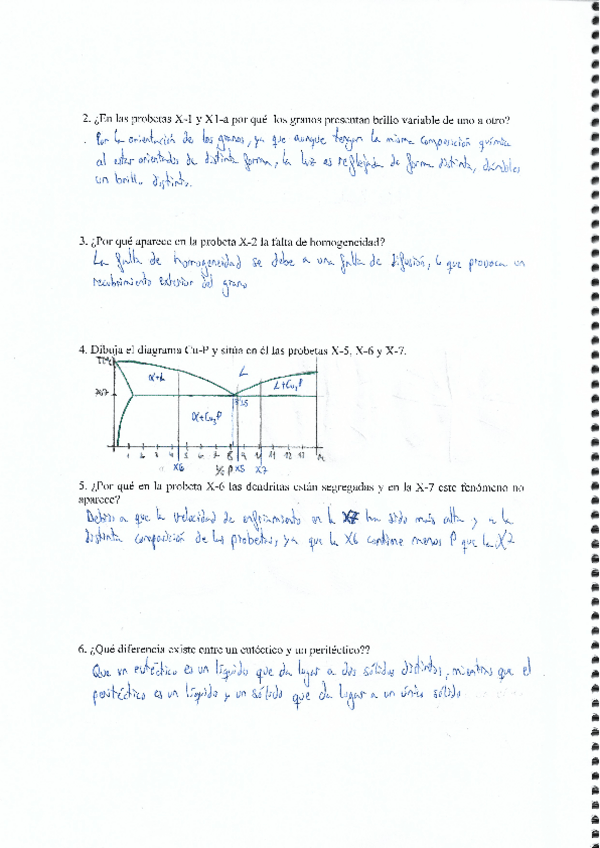 2. ¿En las probetas X-1 y X1-a por qué los granos presentan brillo variable de uno a otro?
. Por la orientación de los granos, ya que aunque tengan la misma composición química
al estar orientados de distinta forma, la luz es reflejada de forma distinta, dándoles
un brillo distinto.
3. ¿Por qué aparece en la probeta X-2 la falta de homogeneidad?
La falta de homogeneidad se debe a una falta de difusión, lo que provoca un
recubrimiento exterior del grano
4. Dibuja el diagrama Cu-P y sitúa en él las probetas X-5, X-6 y X-7.
α+L
L
L+Cu3P
α+Cu3P
1 2 3 4 5 6 7 8 9 10 11 12 13
X6 % P X5 X7
5. ¿Por qué en la probeta X-6 las dendritas están segregadas y en la X-7 este fenómeno no
aparece?
Debido a que la velocidad de enfriamiento en la X7 ha sido más alta y a la
distinta composición de las probetas, ya que la X6 contiene menos P que la X7
6. ¿Qué diferencia existe entre un eutéctico y un peritéctico??
Que un eutéctico es un líquido que da lugar a dos sólidos distintos, mientras que el
peritéctico es un líquido y un sólido que da lugar a un único sólido